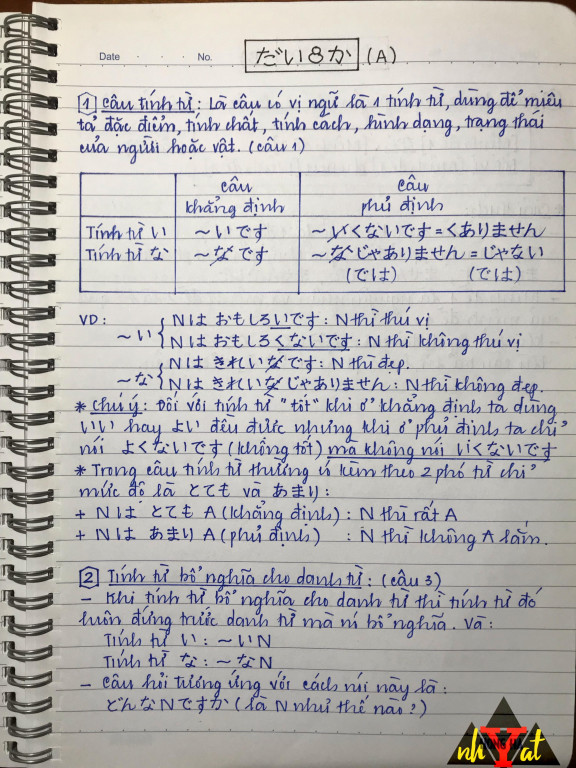 Date . . . No. だい8か (A)
1 Câu tính từ: Là câu có vị ngữ là 1 tính từ, dùng để miêu
tả đặc điểm, tính chất, tính cách, hình dạng, trạng thái
của người hoặc vật. (câu 1)
câu khẳng định câu phủ định
Tính từ い ~いです ~いくないです = くありません
Tính từ な ~なです ~なじゃありません = じゃない
(では) (では)
VD:
~い { Nは おもしろいです: N thì thú vị
Nは おもしろくないです: N thì không thú vị
~な { Nは きれいなです: N thì đẹp.
Nは きれいなじゃありません: N thì không đẹp.
* Chú ý: Đối với tính từ "tốt" khi ở khẳng định ta dùng
いい hay よい đều được nhưng khi ở phủ định ta chỉ
nói よくないです (không tốt) mà không nói いくないです
* Trong câu tính từ thường có kèm theo 2 phó từ chỉ
mức độ là とても và あまり:
+ Nは とても A (khẳng định): N thì rất A
+ Nは あまり A (phủ định) : N thì không A lắm.
2 Tính từ bổ nghĩa cho danh từ: (câu 3)
- Khi tính từ bổ nghĩa cho danh từ thì tính từ đó
luôn đứng trước danh từ mà nó bổ nghĩa. Và:
Tính từ い: ~いN
Tính từ な: ~なN
- Câu hỏi tương ứng với cách nói này là:
どんなNですか (là N như thế nào?)
nh Y at